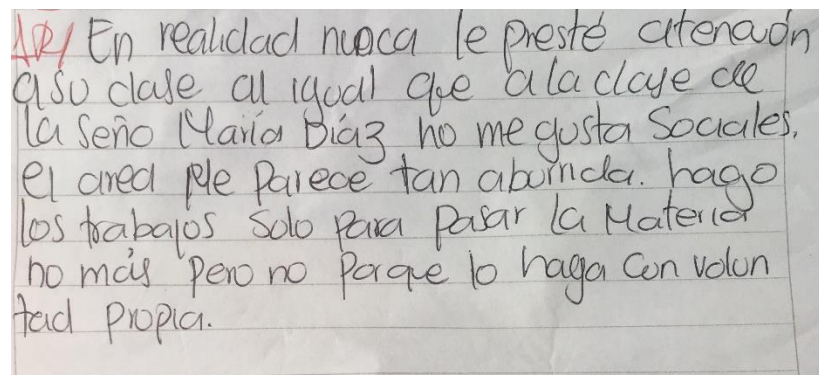 1R/ En realidad nunca le presté atención
a su clase al igual que a la clase de
la Seño María Díaz no me gusta Sociales,
el area Me Parece tan aburrida. hago
los trabajos Solo Para Pasar la Materia
no más Pero no Porque lo haga Con volun
tad Propia.